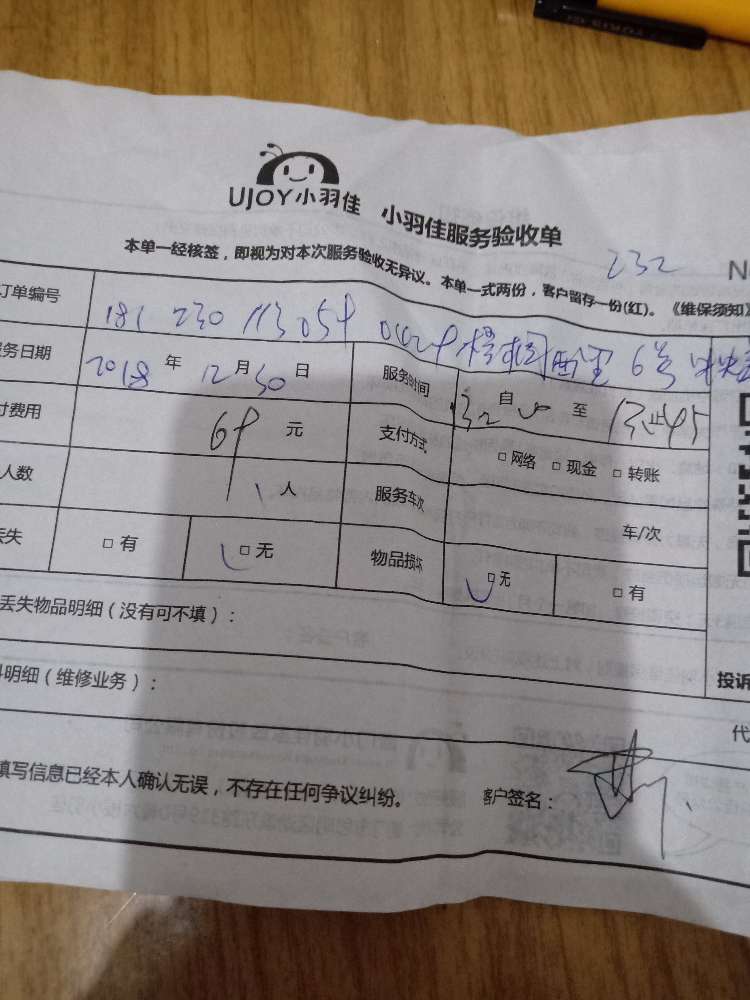 UJOY小羽佳 小羽佳服务验收单
232
本单一经核签，即视为对本次服务验收无异议。本单一式两份，客户留存一份(红)。《维保须知》
订单编号 181 230 113 054
6号
务日期 2018年12月30日 服务时间 自 至
付费用 69元 支付方式 □网络 □现金 □转账
人数 1人 服务车次 车/次
丢失 □有 □无 物品损坏 □无 □有
丢失物品明细（没有可不填）：
料明细（维修业务）：
投诉
代
填写信息已经本人确认无误，不存在任何争议纠纷。 客户签名：